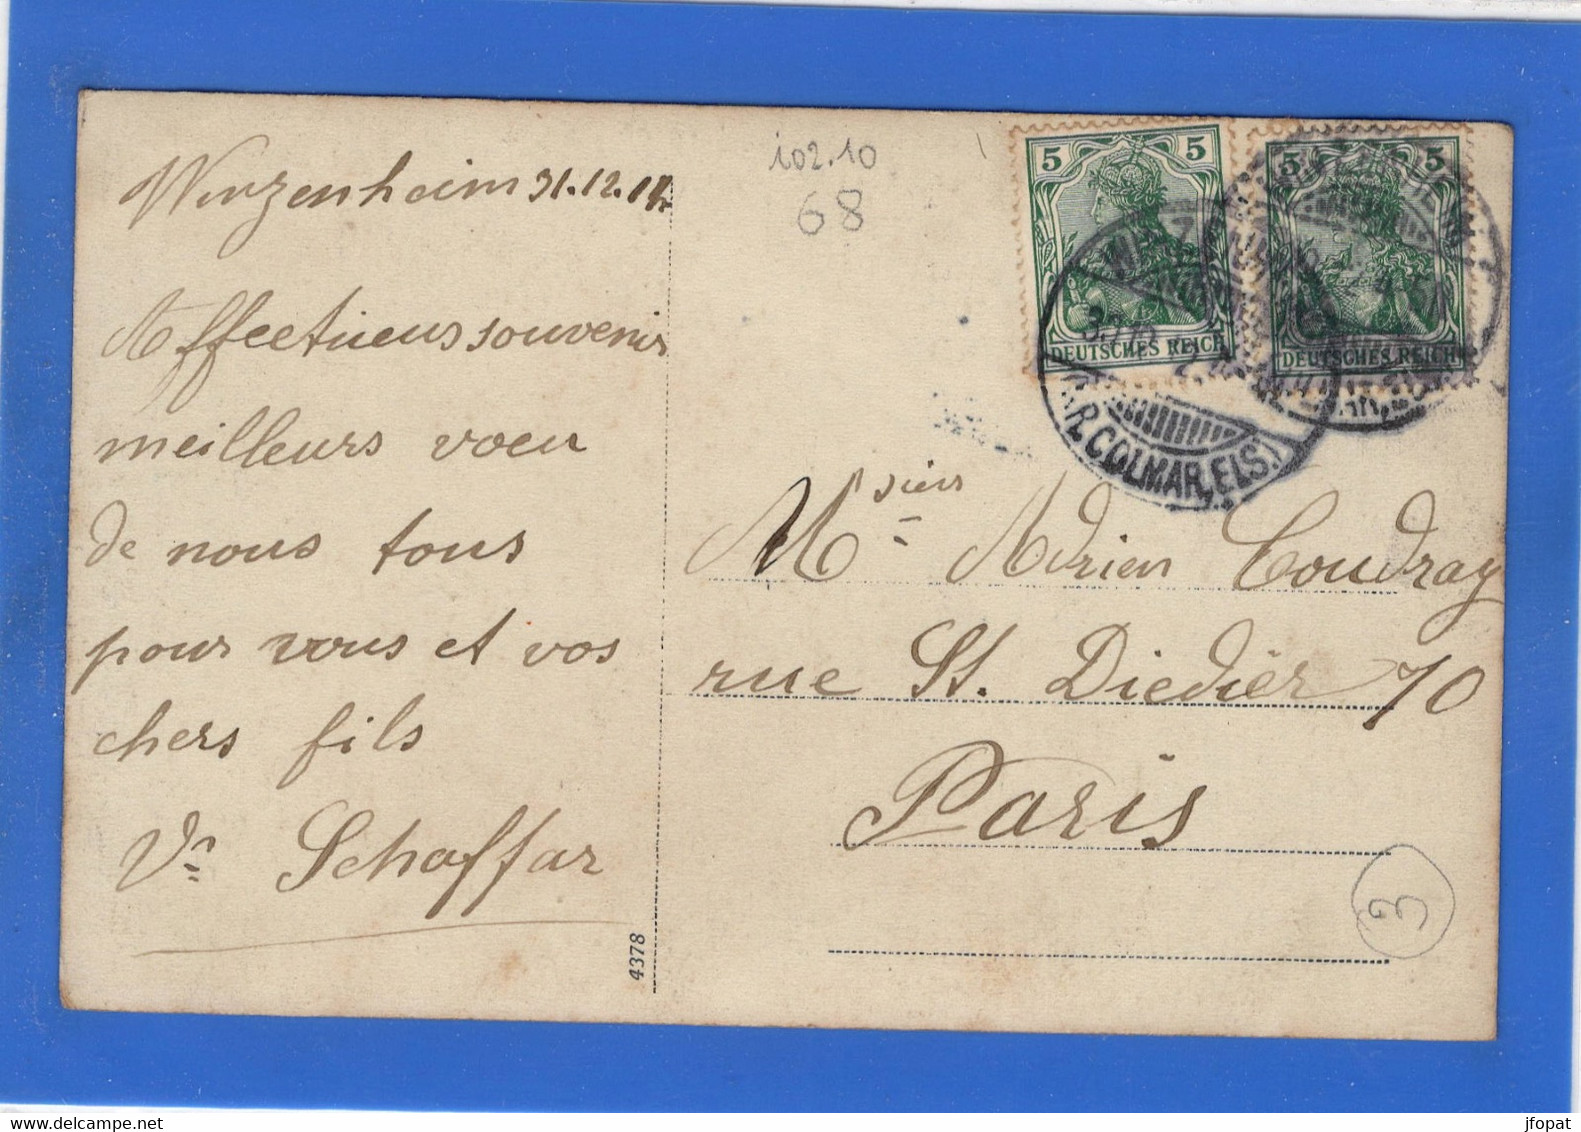 Winzenheim 31.12.
Affectueus souvenir
meilleurs voeu
de nous tous
pour vous et vos
chers fils
Vr Schaffar
4378
102.10
68
5 5
DEUTSCHES REICH
5 5
DEUTSCHES REICH
COLMAR, ELS.
Msieur Adrien Coudray
rue St. Diediër 70
Paris
3
jfopat